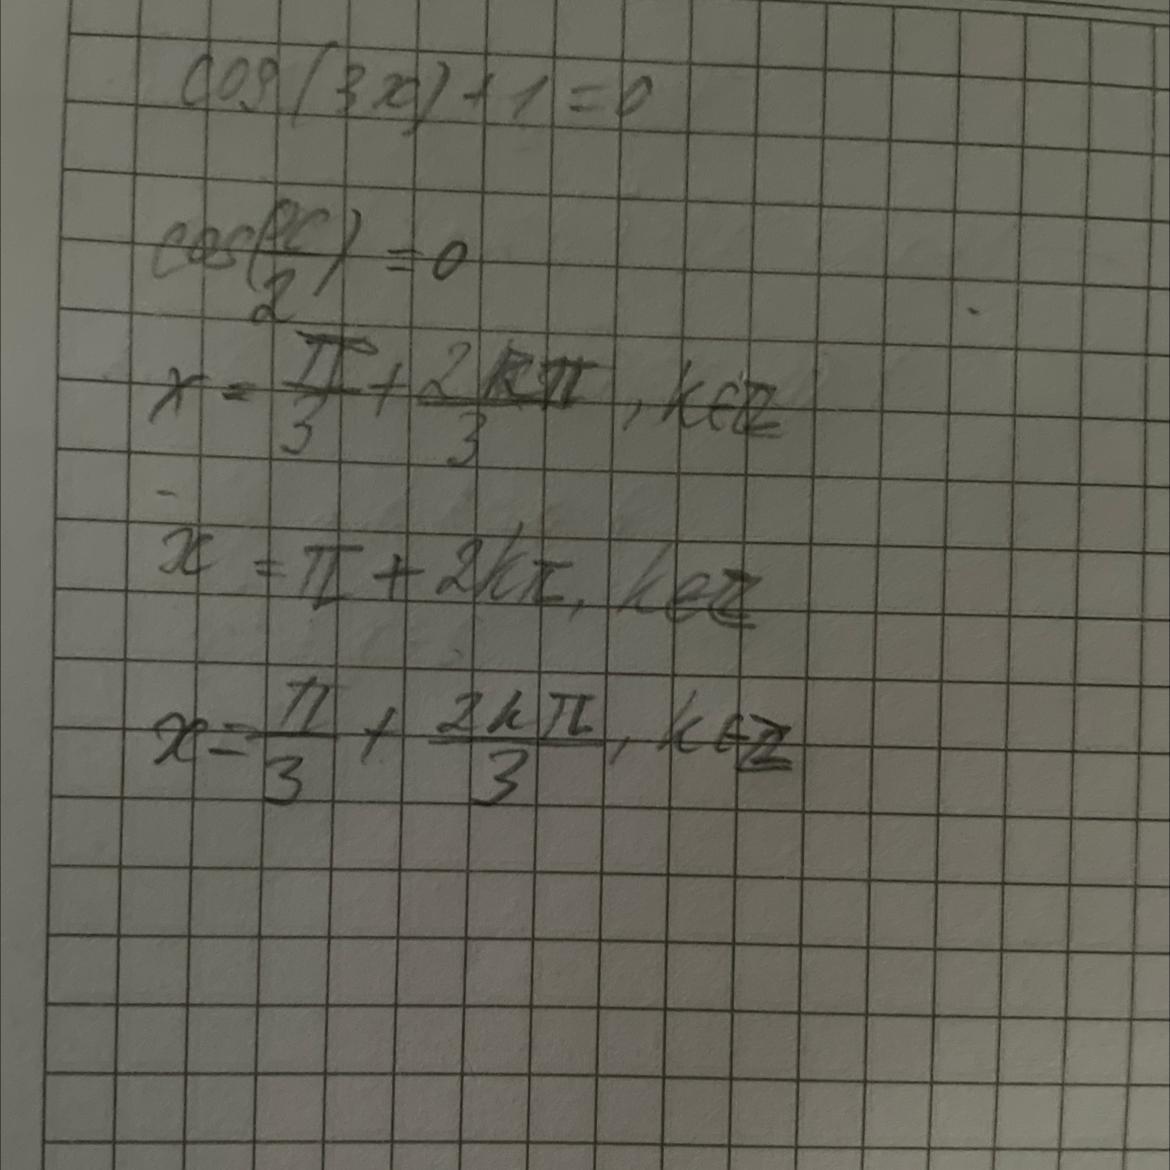 cos(3x)+1=0
cos(x/2)=0
x = π/3 + 2kπ/3, k∈Z
x = π + 2kπ, k∈Z
x = π/3 + 2kπ/3, k∈Z